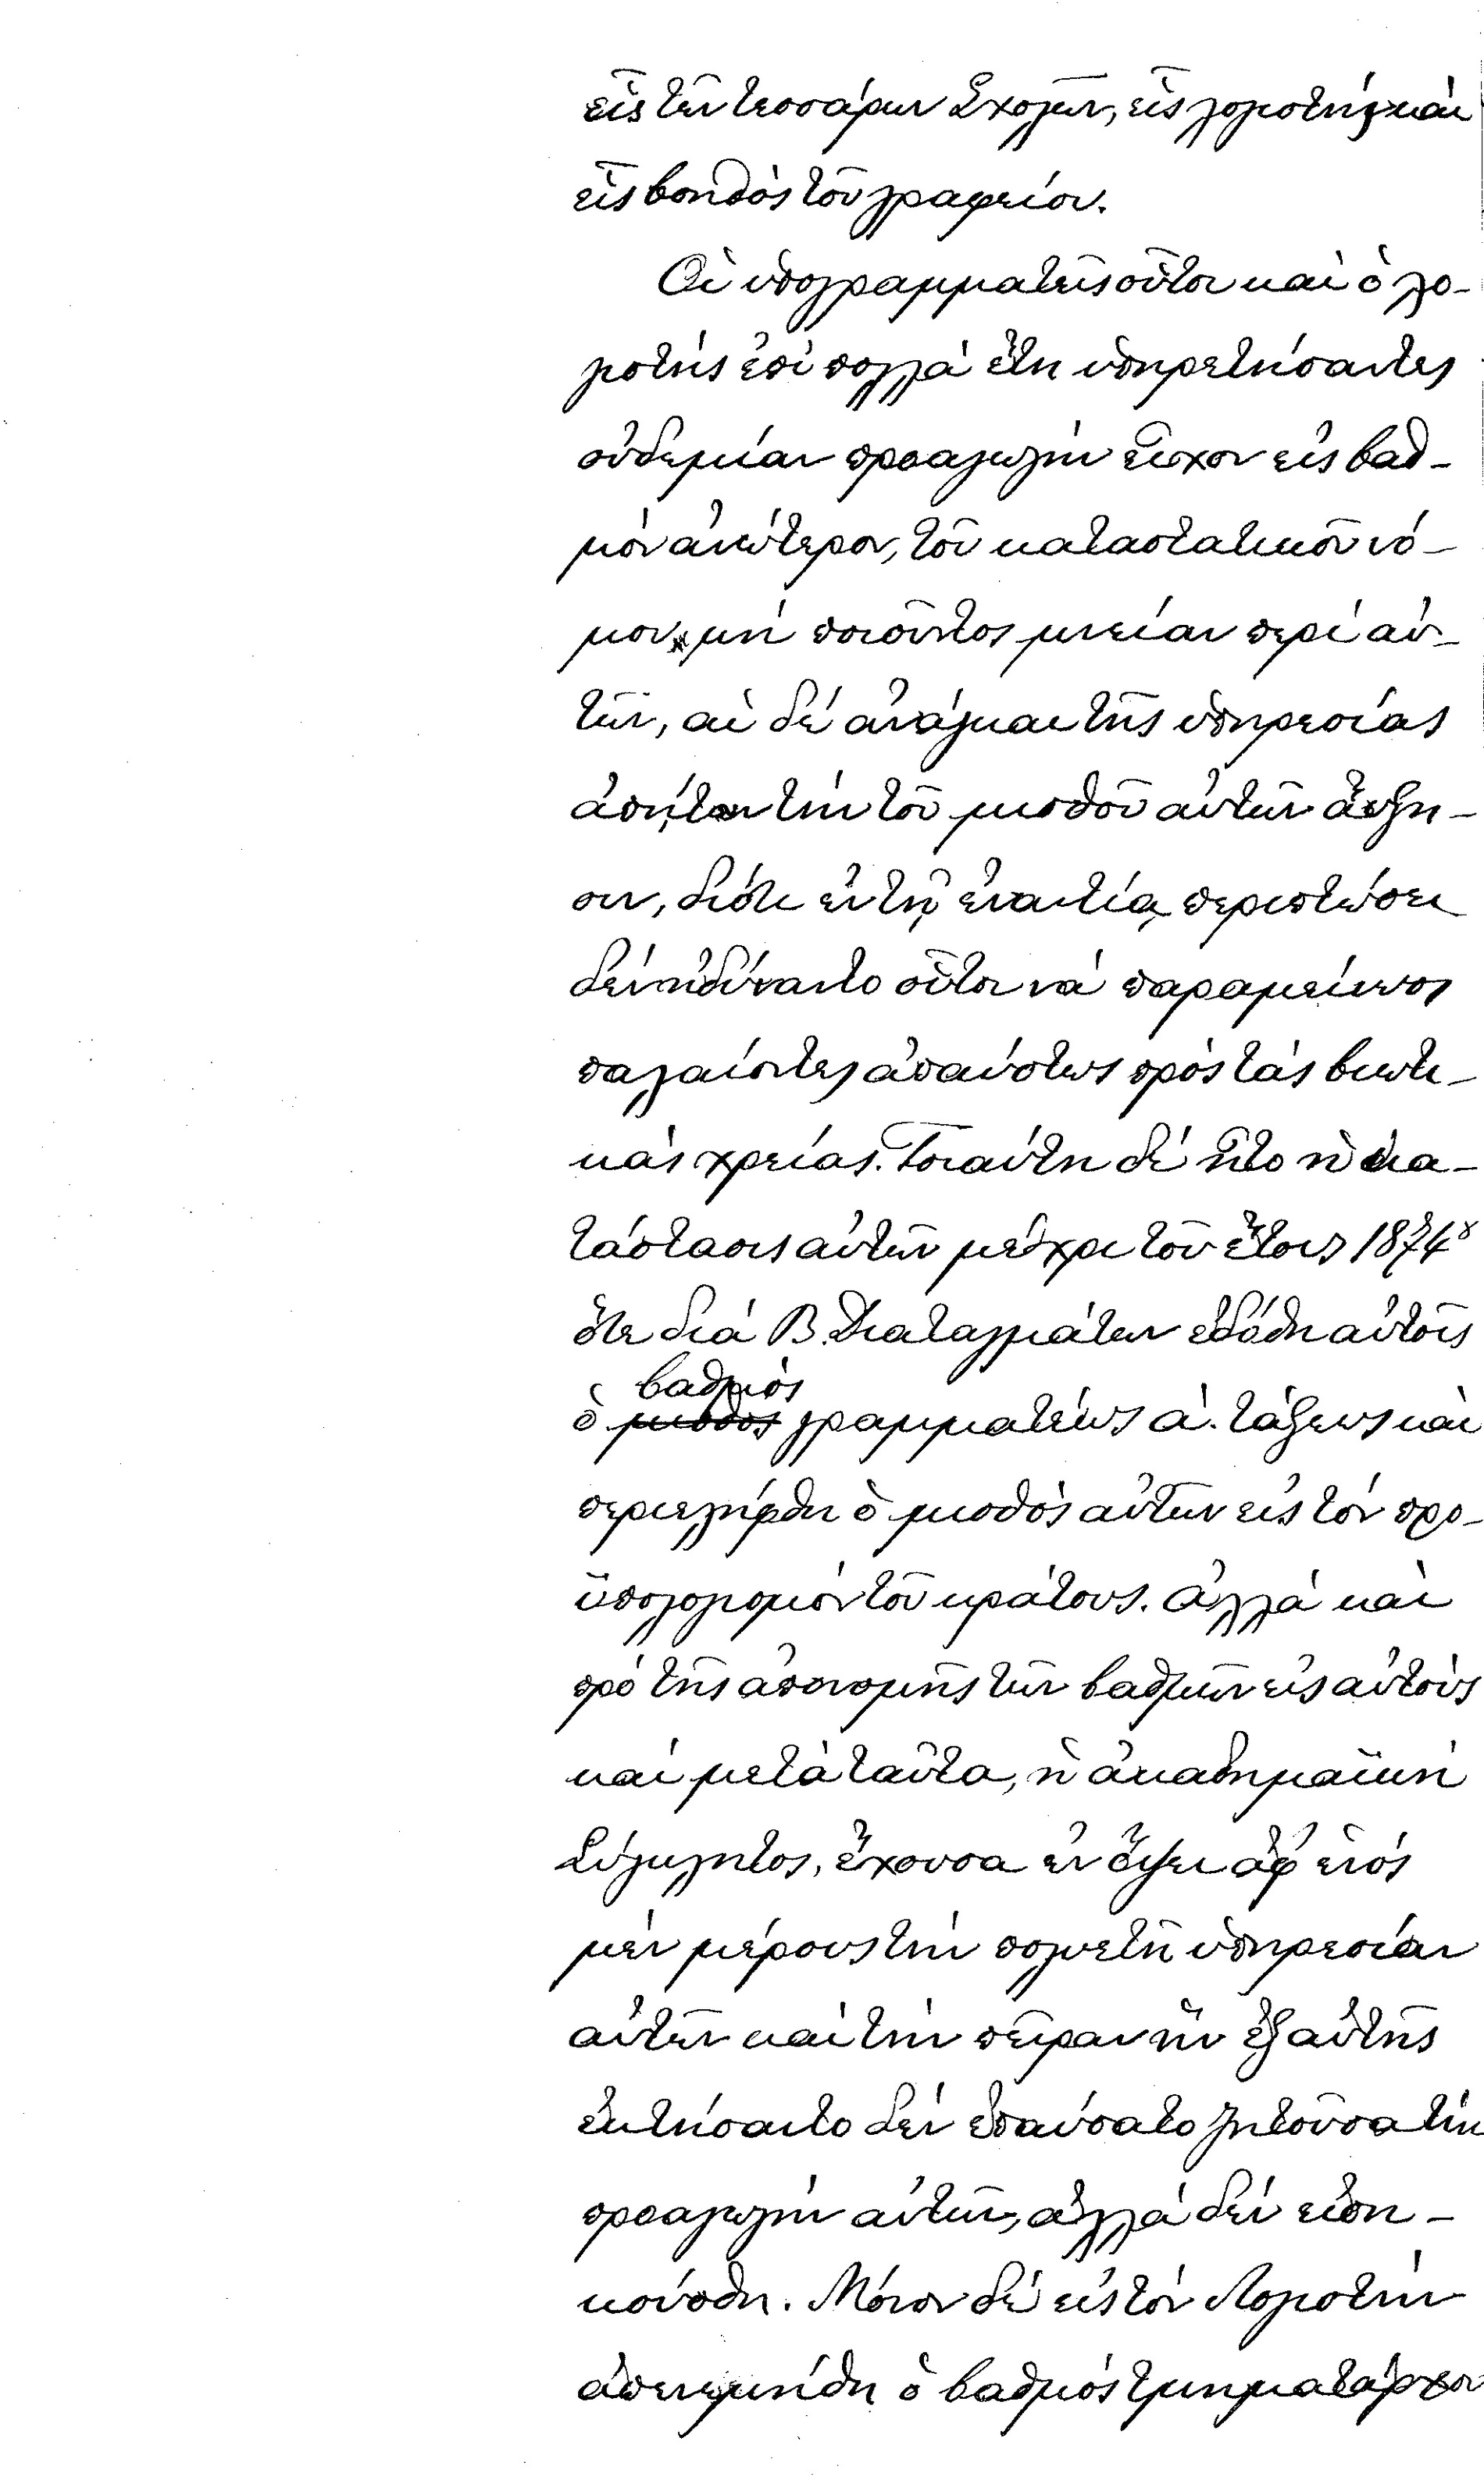 εἷς τῶν τεσσάρων Σχολῶν, εἷς λογιστής καὶ
εἷς βοηθὸς τοῦ γραφείου.
Οἱ ὑπογραμματεῖς οὗτοι καὶ ὁ λο-
γιστής ἐπὶ πολλὰ ἔτη ὑπηρετήσαντες
οὐδεμίαν προαγωγὴν εἶχον εἰς βαθ-
μὸν ἀνώτερον, τοῦ καταστατικοῦ νό-
μου μὴ ποιοῦντος μνείαν περὶ αὐ-
τῶν, αἱ δὲ ἀνάγκαι τῆς ὑπηρεσίας
ἀπῄτουν τὴν τοῦ μισθοῦ αὐτῶν αὔξη-
σιν, διότι ἐν τῇ ἐναντίᾳ περιπτώσει
δὲν ἠδύναντο οὗτοι νὰ παραμείνωσι
παλαίοντες ἀπαύστως πρὸς τὰς βιωτι-
κὰς χρείας. Τοιαύτη δὲ ἦτο ἡ κα-
τάστασις αὐτῶν μέχρι τοῦ ἔτους 1874
ὅτε διὰ Β. Διαταγμάτων ἐδόθη αὐτοῖς
βαθμὸς
ὁ μισθὸς γραμματέως α΄. τάξεως καὶ
περιελήφθη ὁ μισθὸς αὐτῶν εἰς τὸν προ-
ϋπολογισμὸν τοῦ κράτους. Ἀλλὰ καὶ
πρὸ τῆς ἀπονομῆς τῶν βαθμῶν εἰς αὐτοὺς
καὶ μετὰ ταῦτα, ἡ ἀκαδημαϊκὴ
Σύγκλητος, ἔχουσα ἐν ὄψει ἀφ' ἑνὸς
μὲν μέρους τὴν πολυετῆ ὑπηρεσίαν
αὐτῶν καὶ τὴν πεῖραν ἣν ἐξ αὐτῆς
ἐκτήσαντο δὲν ἐπαύσατο ζητοῦσα τὴν
προαγωγὴν αὐτῶν, ἀλλὰ δὲν εἰση-
κούσθη. Μόνον δὲ εἰς τὸν Λογιστὴν
ἀπενεμήθη ὁ βαθμὸς τμηματάρχου